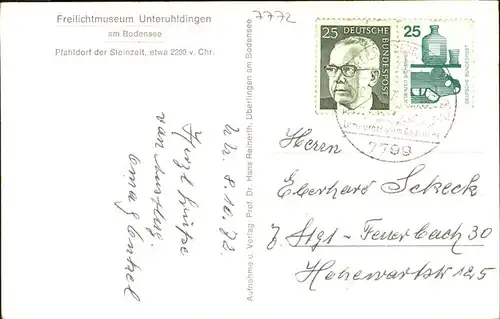 Freilichtmuseum Unteruhldingen
am Bodensee
Pfahldorf der Steinzeit, etwa 2200 v. Chr.
7772
Aufnahme u. Verlag Prof. Dr. Hans Reinerth, Überlingen am Bodensee
25 DEUTSCHE BUNDESPOST
25
DEUTSCHE BUNDESPOST
7799
Uu. 8.10.72
Herzl. Grüße
vom Ausflug.
Oma
Herrn
Eberhard Scheck
7 Stgt-Feuerbach 30
Hohewartstr 125